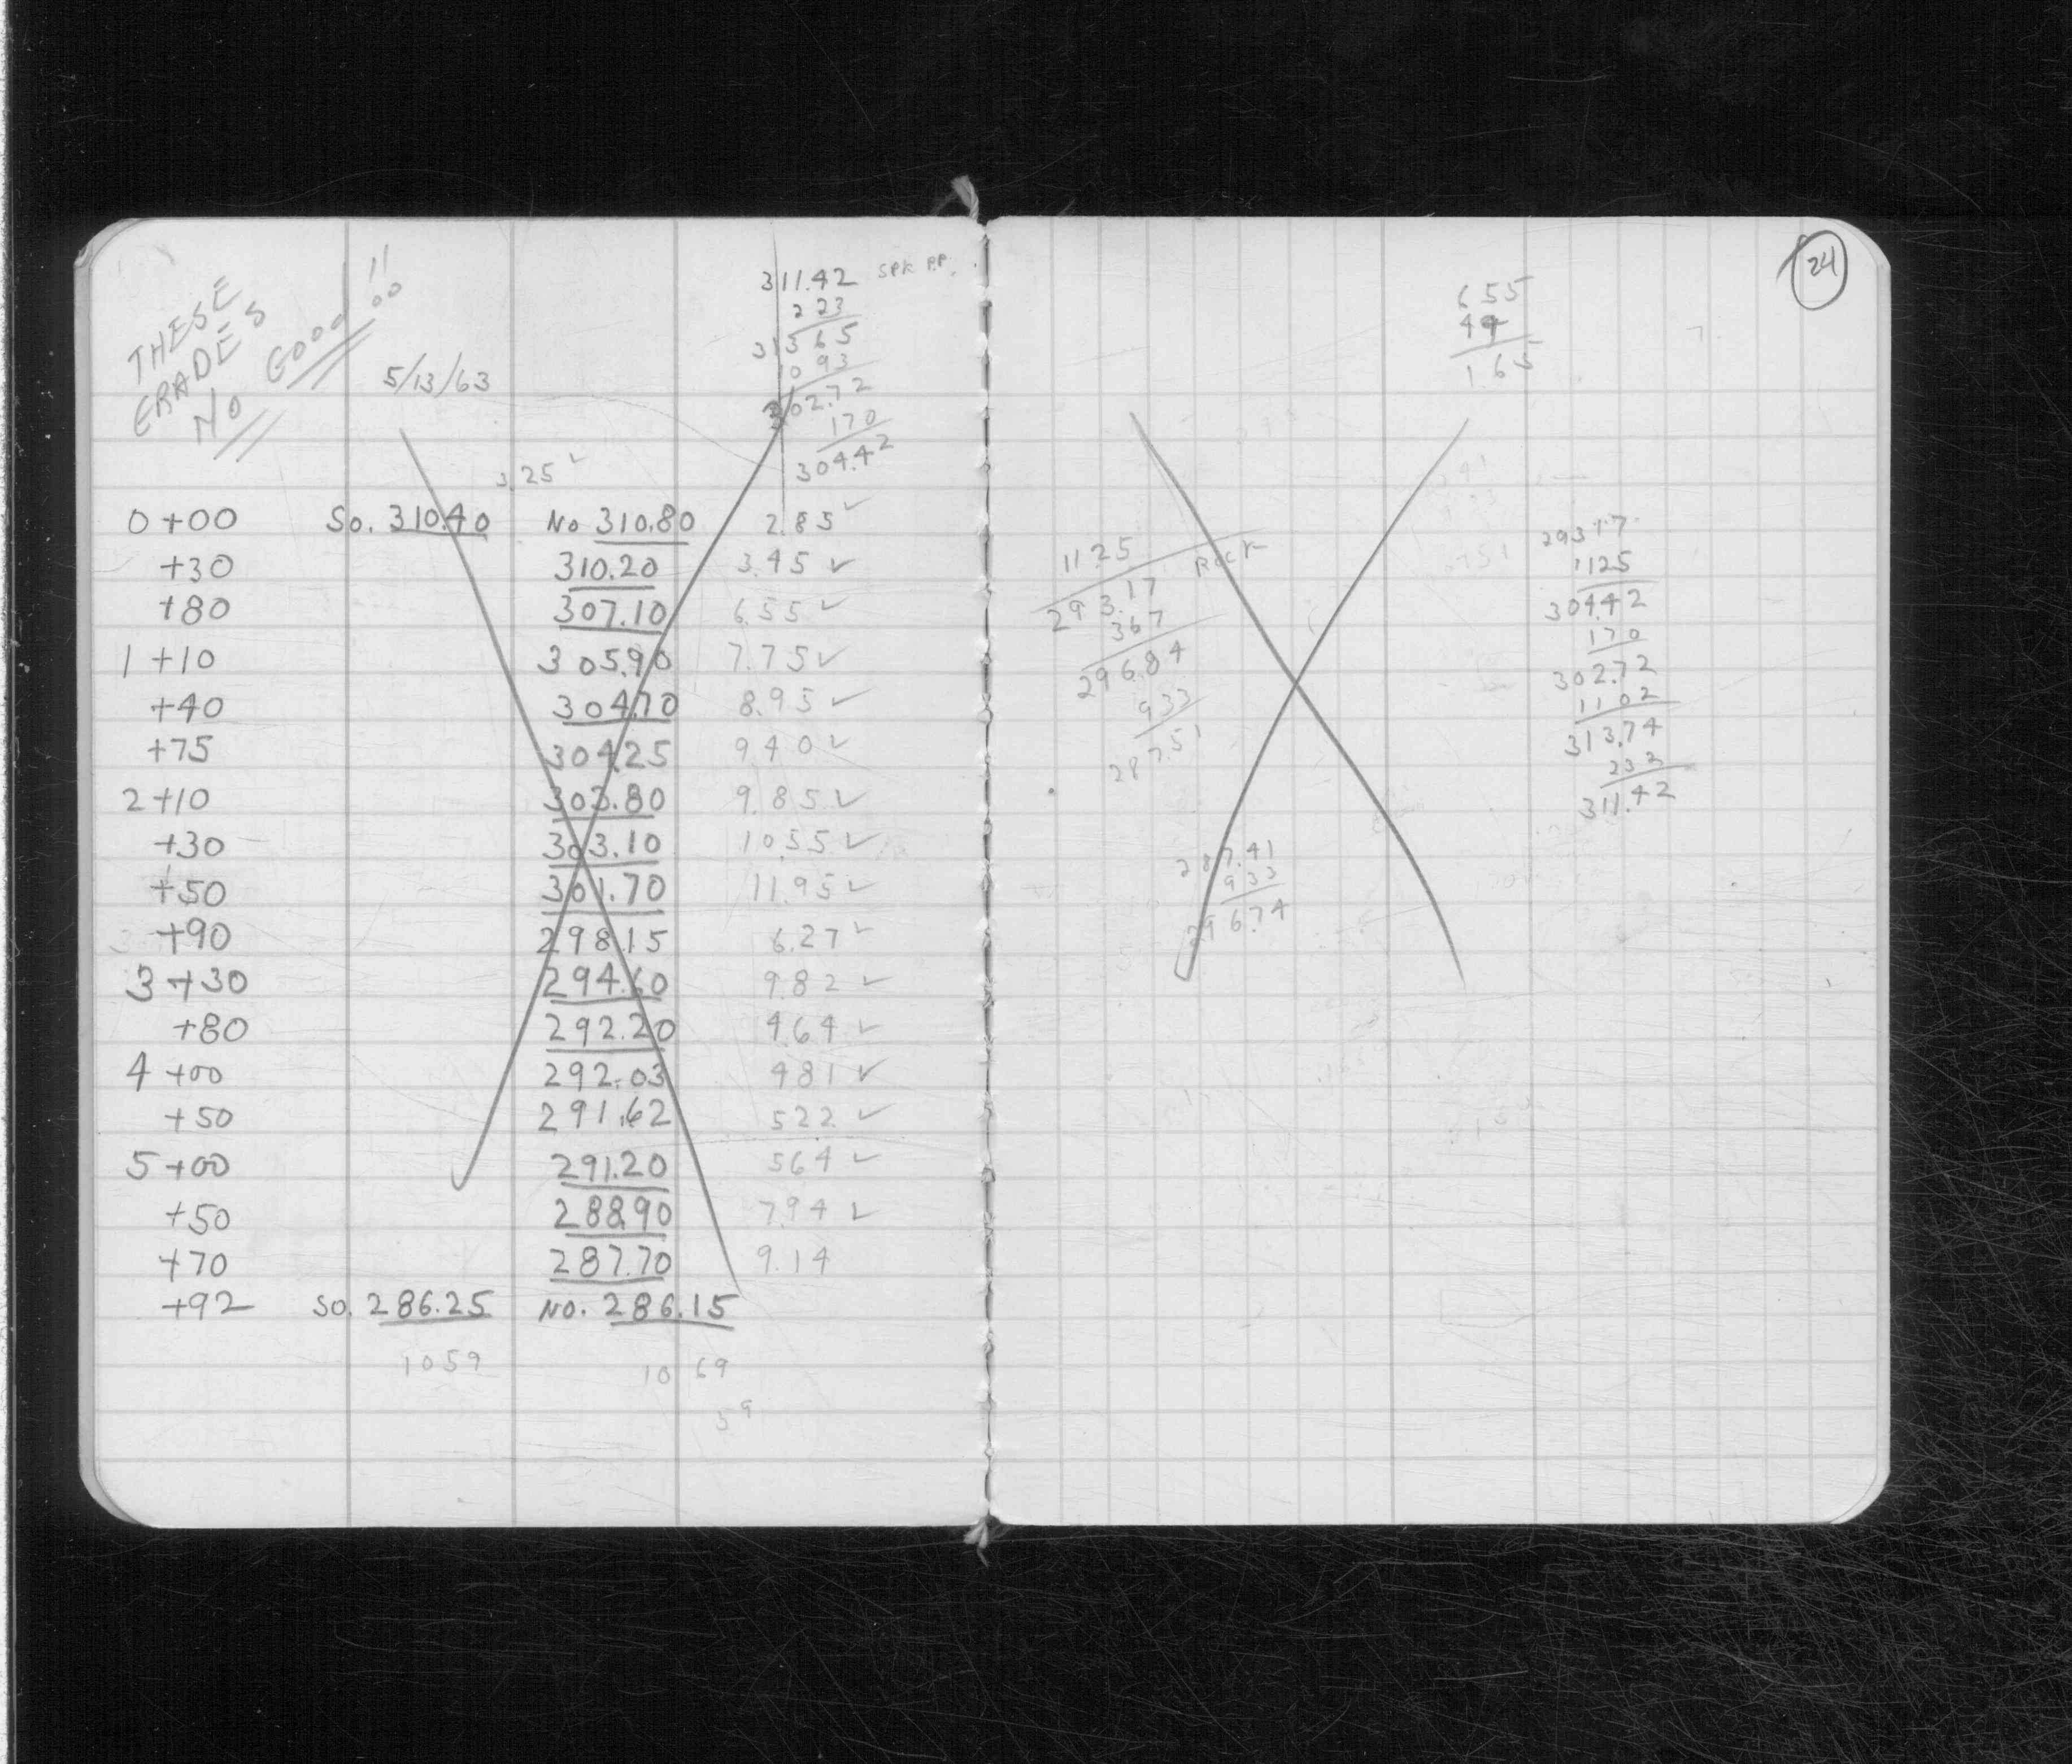 THESE
GRADES
NO GOOD!!
5/13/63
311.42 SPK P.P.
223
313 65
10 93
302.72
170
304.42
3.25 ✓
0+00 So. 310.40 No 310.80 2.85 ✓
+30 310.20 3.45 ✓
+80 307.10 6.55 ✓
1+10 305.90 7.75 ✓
+40 304.70 8.95 ✓
+75 304.25 9.40 ✓
2+10 303.80 9.85 ✓
+30 303.10 10.55 ✓
+50 301.70 11.95 ✓
+90 298.15 6.27 ✓
3+30 294.60 9.82 ✓
+80 292.20 4.64 ✓
4+00 292.03 4.81 ✓
+50 291.62 5.22 ✓
5+00 291.20 5.64 ✓
+50 288.90 7.94 ✓
+70 287.70 9.14
+92 So. 286.25 No. 286.15
10 59 10 69
59
24
655
49
1.65
1125
293.17 ROCK
367
296.84
933
287.51
287.41
933
296.74
293.17
1125
304.42
170
302.72
1102
313.74
232
311.42